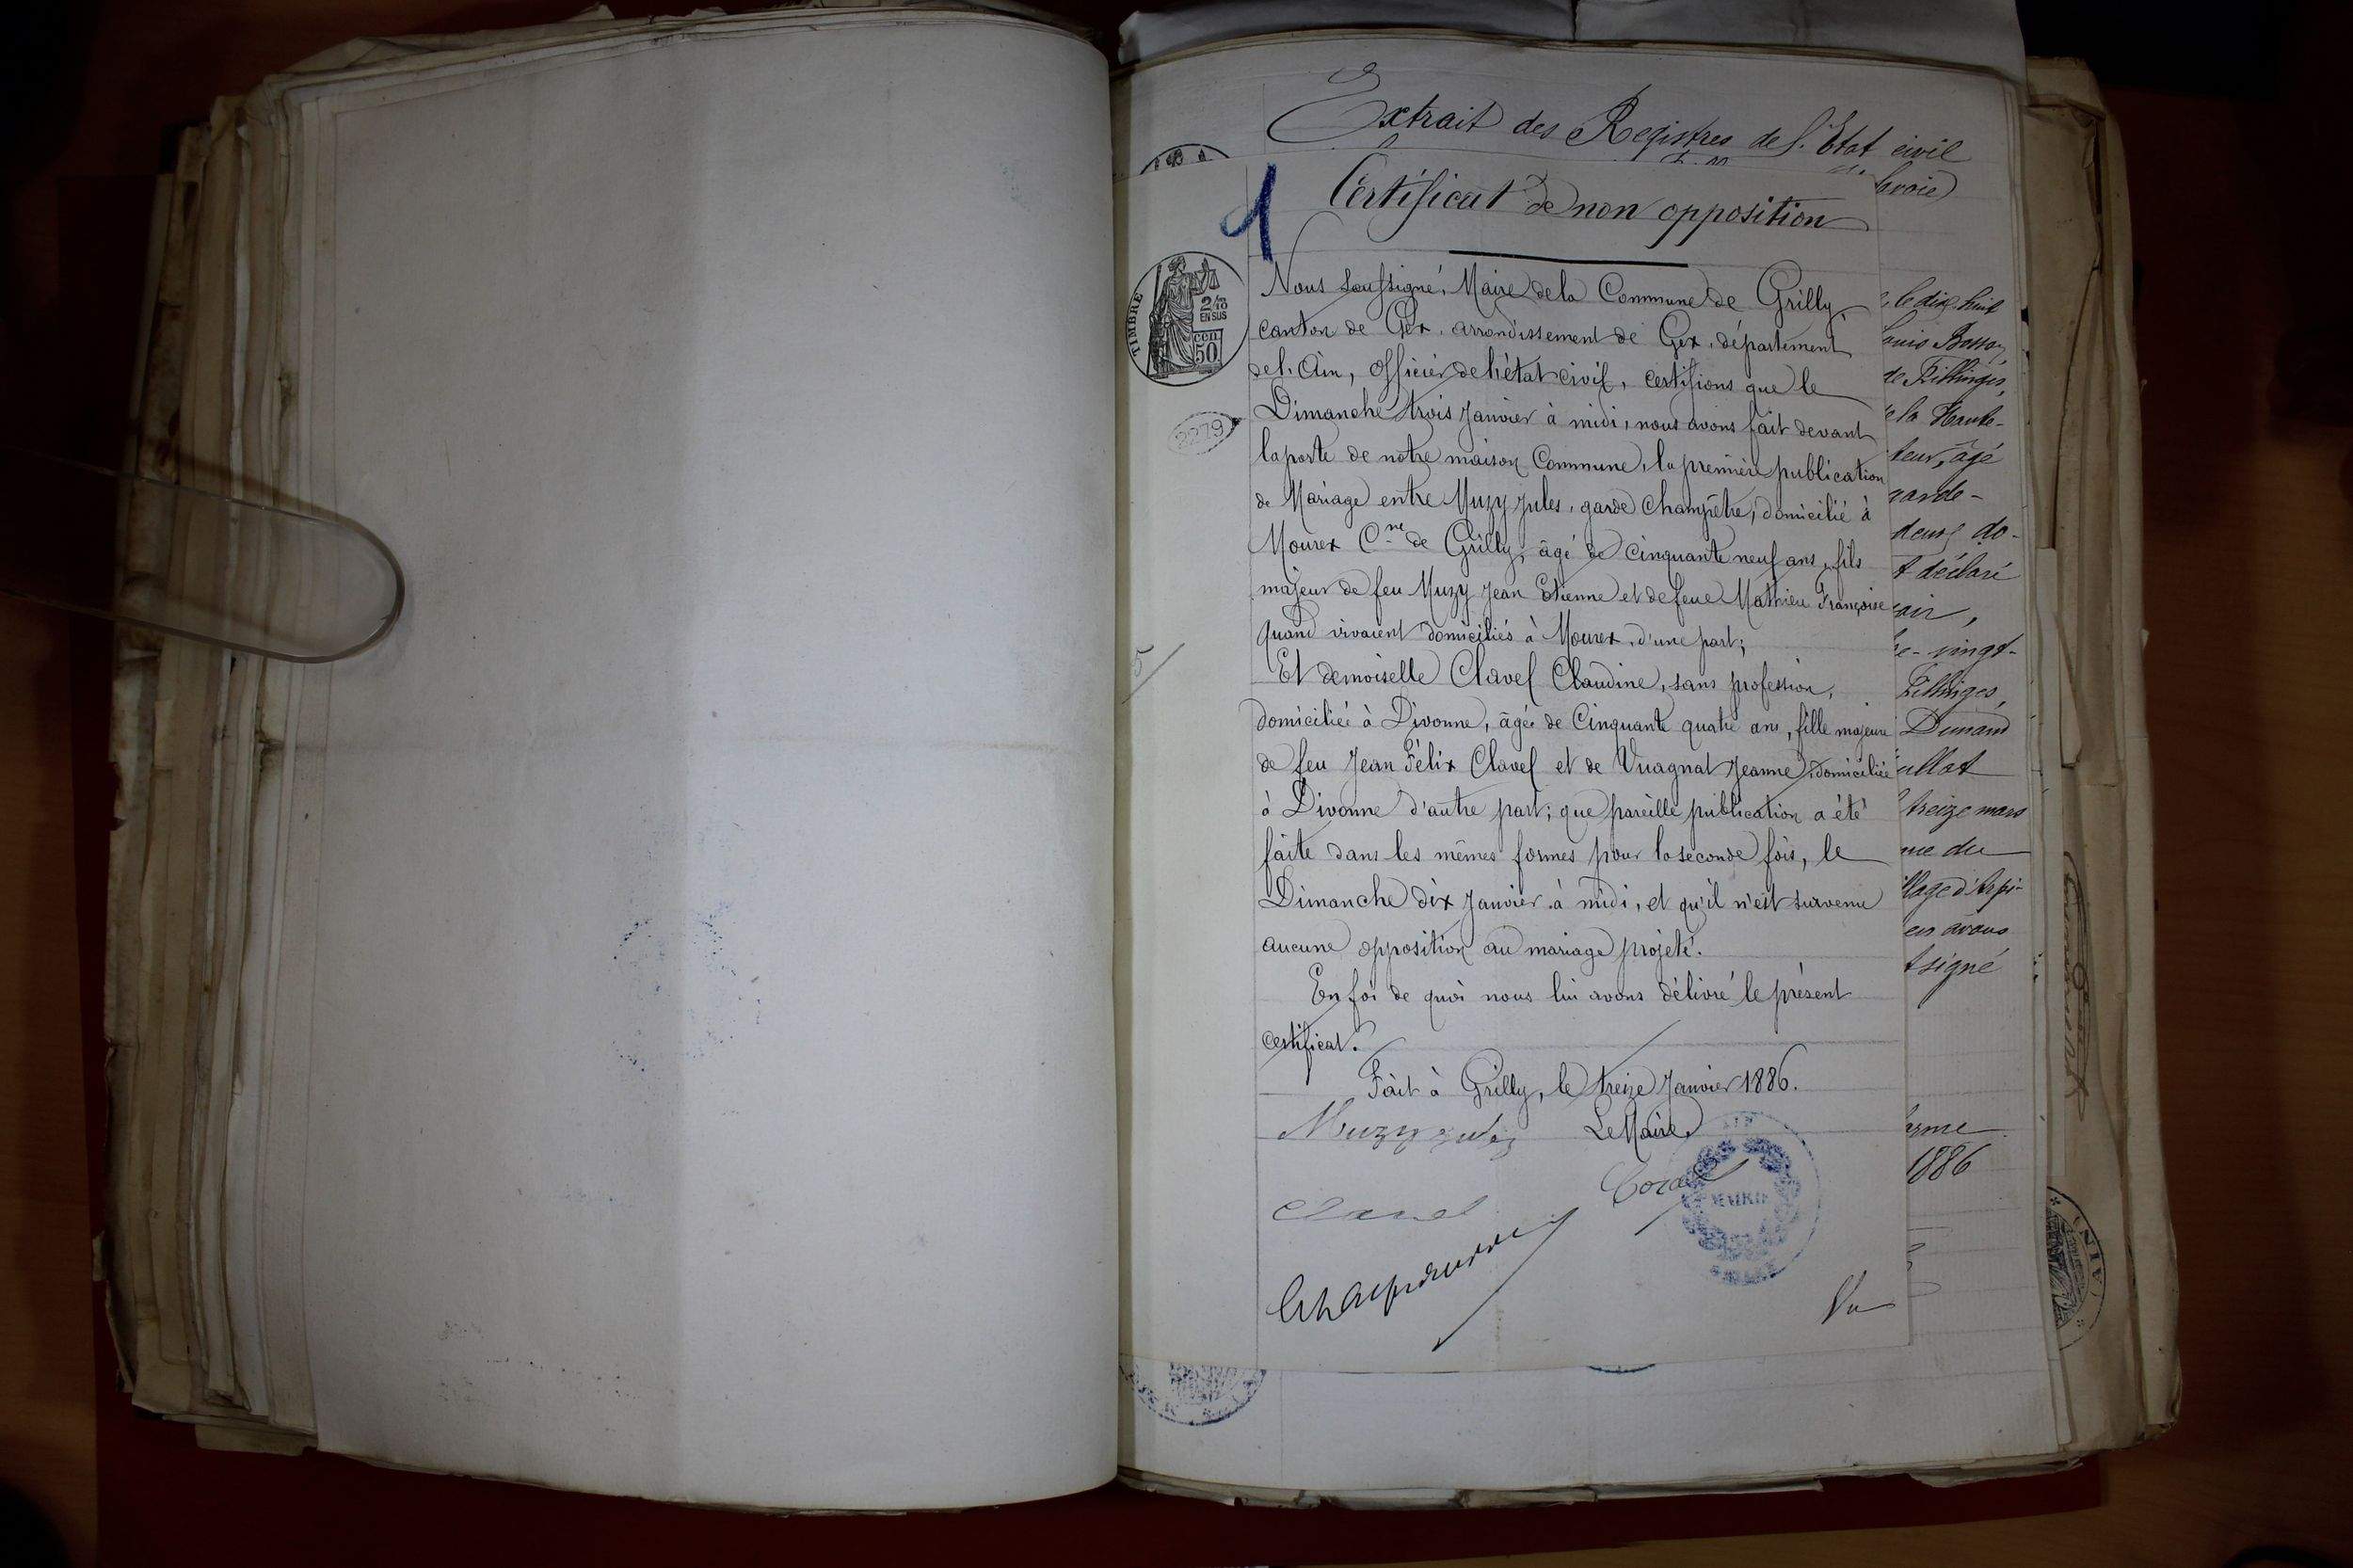 Extrait des Registres de l'Etat civil
Savoie
1
Certificat de non opposition
TIMBRE
2/10
EN SUS
cen
50
2279
Nous Soussigné, Maire de la Commune de Grilly,
canton de Gex, arrondissement de Gex, département
de l'Ain, officier de l'état civil, certifions que le
Dimanche trois Janvier à midi, nous avons fait devant
la porte de notre maison Commune, la première publication
de Mariage entre Muzy Jules, garde Champêtre, domicilié à
Mourex Cne de Grilly, âgé de Cinquante neuf ans, fils
majeur de feu Muzy Jean Etienne et de feue Mathieu Françoise
quand vivaient domiciliés à Mourex, d'une part;
Et demoiselle Clavel Claudine, sans profession,
domiciliée à Divonne, âgée de Cinquante quatre ans, fille majeure
de feu Jean Félix Clavel et de Vuagnat Jeanne, domiciliée
à Divonne d'autre part; que pareille publication a été
faite dans les mêmes formes pour la seconde fois, le
Dimanche dix Janvier à midi, et qu'il n'est survenu
aucune opposition au mariage projeté.
En foi de quoi nous lui avons délivré le présent
certificat.
Fait à Grilly, le treize Janvier 1886.
Muzy Jules Le Maire
Clavel
MAIRIE
Vu
le dix huit
Louis Bosson
de Fillinges,
la Haute-
teur, âgé
garde-
deux do-
t déclaré
oir,
e-vingt-
Fillinges,
Dunand
ullat
treize mars
me du
llage d'Arpi-
en avons
t signé
orme
1886
AIN